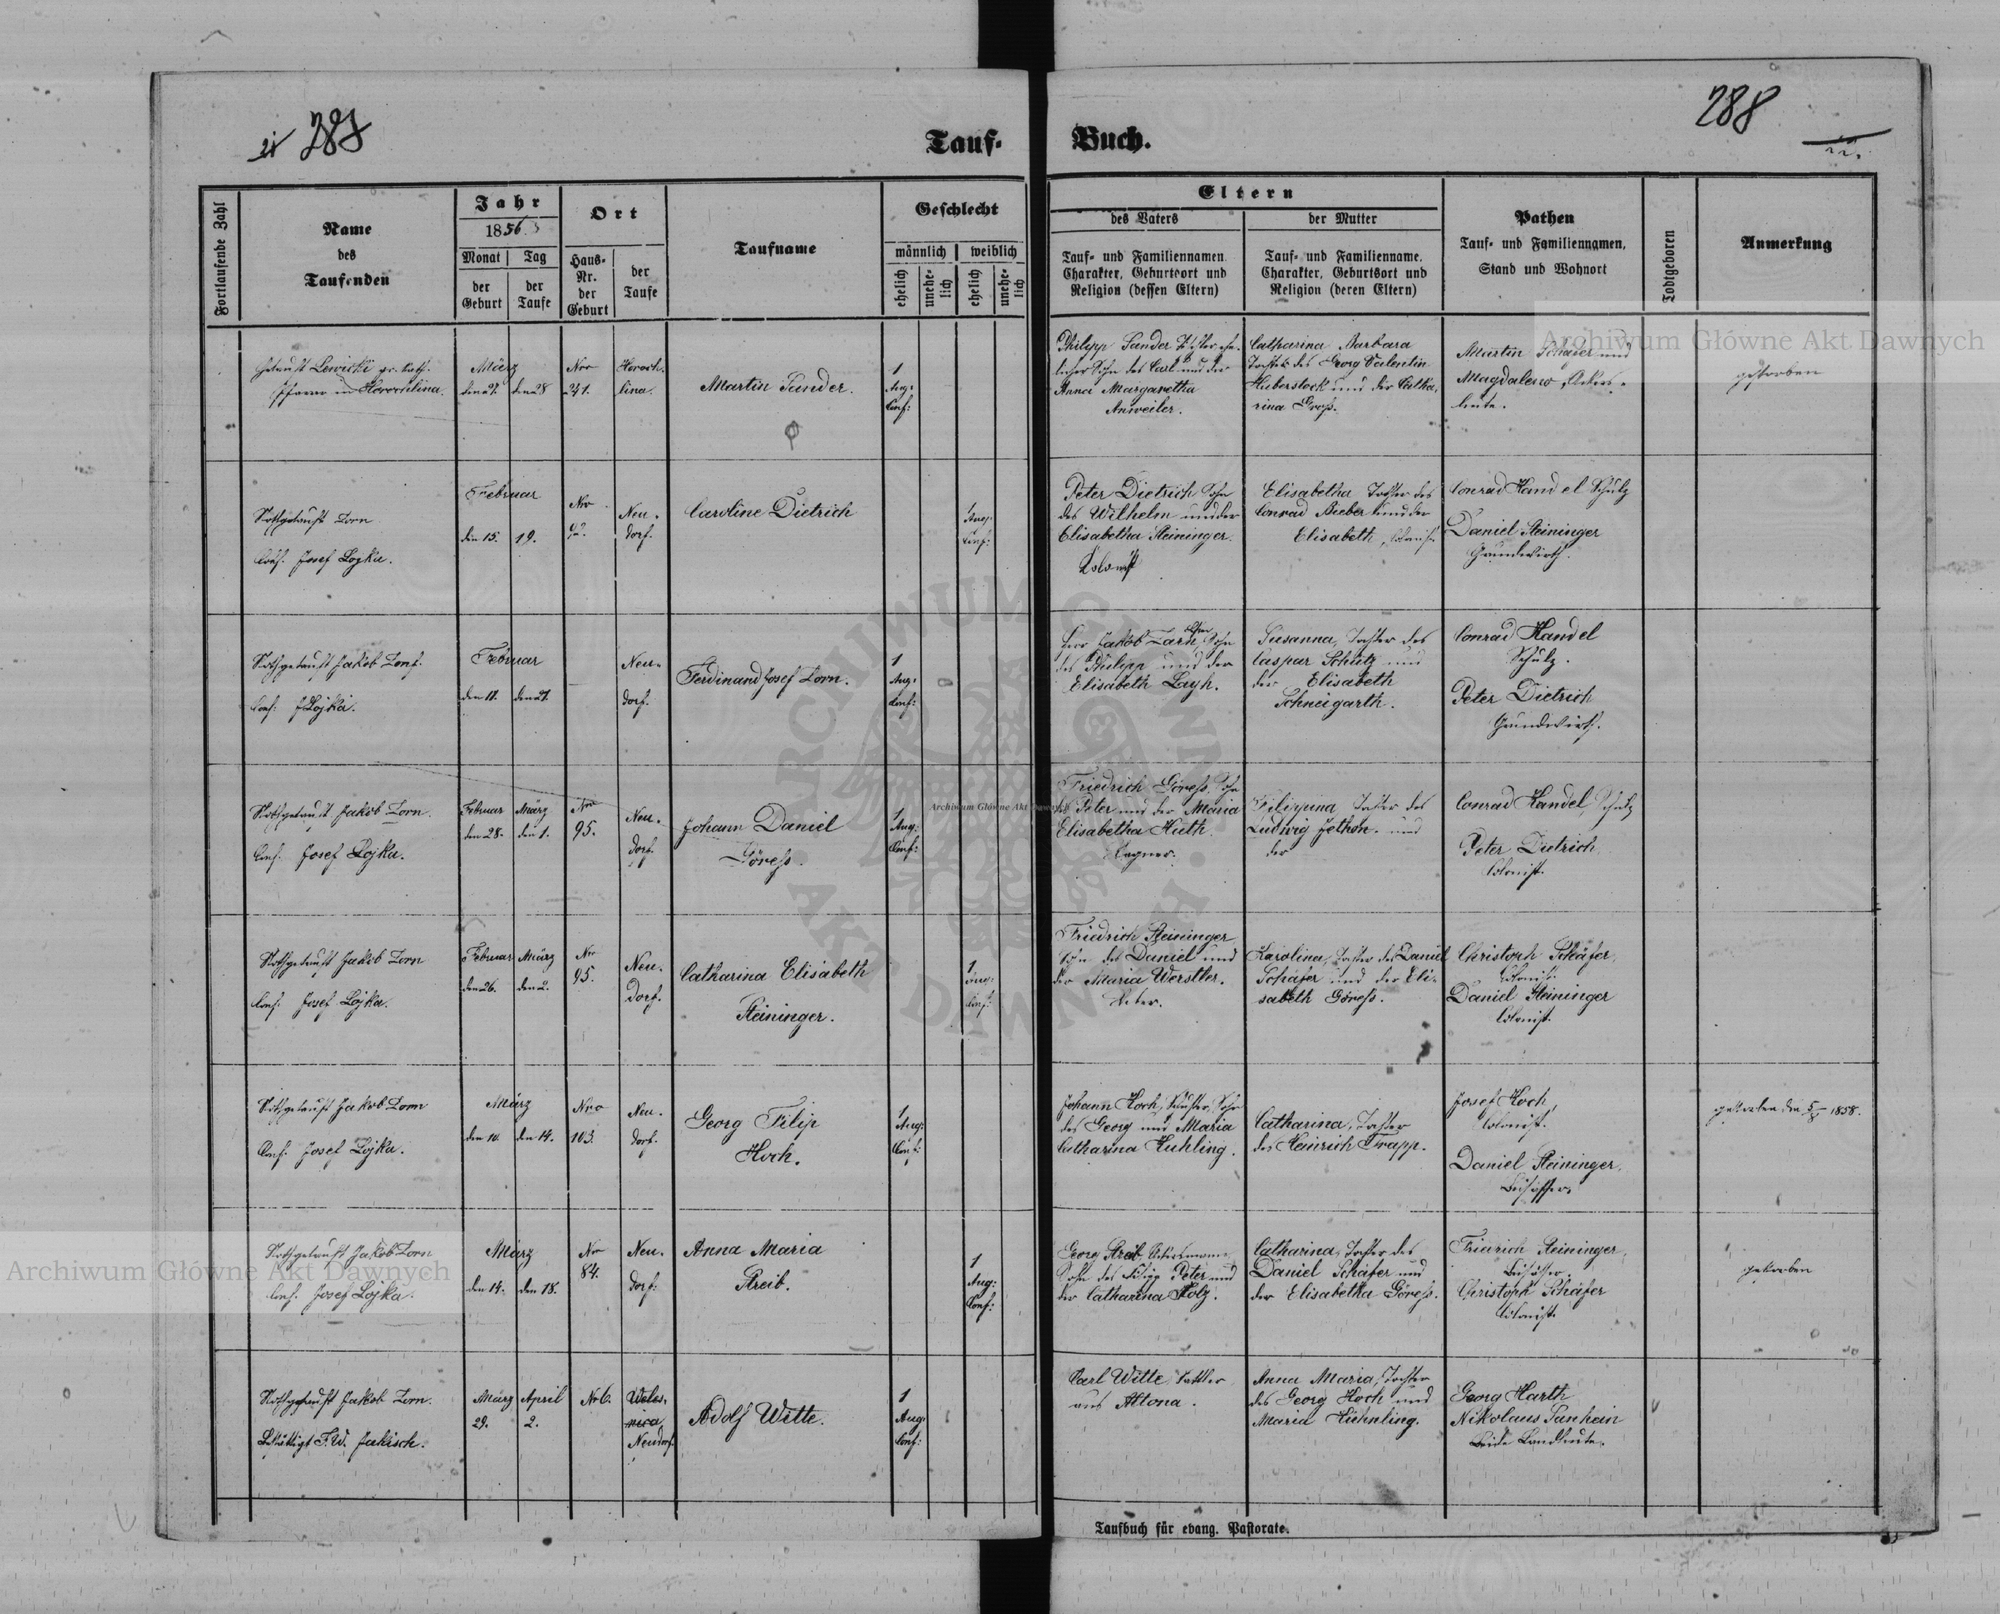 288
288
Tauf-
Buch.
Fortlaufende Zahl
Name
des
Taufenden
Jahr
1856
Monat
Tag
der
Geburt
der
Taufe
Ort
Haus-
Nr.
der
Geburt
der
Taufe
Taufname
Geschlecht
männlich
weiblich
ehelich
unehe-
lich
ehelich
unehe-
lich
Eltern
des Vaters
der Mutter
Tauf- und Familiennamen
Charakter, Geburtsort und
Religion (dessen Eltern)
Tauf- und Familienname.
Charakter, Geburtsort und
Religion (deren Eltern)
Pathen
Tauf- und Familiennamen,
Stand und Wohnort
Todtgeboren
Anmerkung
Getauft Lewicki gr. kath.
Pfarrer in Horocholina.
März
den 27. den 28
Nro
241.
Horoch.
lina.
Martin Sander.
1
Aug:
Conf:
Philipp Sander
Sohn des Carl und der
Anna Margaretha
Anweiler.
Catharina Barbara
Tochter des Georg Valentin
Huberstock und der Catha.
rina Gross.
Martin Schäfer und
Magdalena, Ackers-
leute.
gestorben
Nothgetauft Zorn
Conf. Josef Lojka.
Februar
den 15. 19.
Nro
Neu.
dorf.
Caroline Dietrich
Aug.
Conf:
Peter Dietrich Sohn
des Wilhelm und der
Elisabetha Steininger.
Kolonist
Elisabetha Tochter des
Conrad Bieber und der
Elisabeth
Conrad Handel Schulz
Daniel Steininger
Grundwirth.
Nothgetauft Jakob Zorn.
Conf. J Lojka.
Februar
den 17. den 27.
Neu-
dorf.
Ferdinand Josef Zorn.
1
Aug:
Conf:
Jakob Zorn, Sohn
des Philipp und der
Elisabeth Layh.
Susanna, Tochter des
Caspar Schütz und
der Elisabeth
Schneigarth.
Conrad Handel
Schulz.
Peter Dietrich
Grundwirth.
Nothgetauft Jakob Zorn.
Conf. Josef Lojka.
Februar März
den 28. den 1.
Nro
95.
Neu.
dorf
Johann Daniel
Göress.
1
Aug:
Conf:
Friedrich Göress, Sohn
des Peter und der Maria
Elisabetha Huth.
Wagner.
Filippina, Tochter des
Ludwig Jethon. und
der
Conrad Handel, Schulz
Peter Dietrich
Colonist.
Nothgetauft Jakob Zorn
Conf. Josef Lojka.
Februar März
den 26. den 2.
Nro
95.
Neu.
dorf.
Catharina Elisabeth
Steininger.
1
Aug:
Conf:
Friedrich Steininger
Sohn des Daniel und
der Maria Werstler.
Karolina, Tochter des Daniel
Schäfer und der Eli-
sabeth Göress.
Christoph Schäfer,
Colonist.
Daniel Steininger
Colonist.
Nothgetauft Jakob Zorn
Conf. Josef Lojka.
März
den 10. den 14.
Nro
103.
Neu.
dorf.
Georg Filip
Hoch.
1
Aug:
Conf:
Johann Hoch, Schuster, Sohn
des Georg und Maria
Catharina Kuhling.
Catharina, Tochter
des Heinrich Trapp.
Josef Hoch,
Colonist.
Daniel Steininger,
gestorben den 1858.
Nothgetauft Jakob Zorn
Conf. Josef Lojka.
März
den 14. den 18.
Nro
84.
Neu.
dorf.
Anna Maria
Streib.
1
Aug:
Conf:
Georg Streib, Ackersmann,
Sohn des Filipp Peter und
der Catharina Stolz.
Catharina, Tochter des
Daniel Schäfer und
der Elisabetha Göress.
Friedrich Steininger,
Christoph Schäfer
Colonist.
gestorben
Nothgetauft Jakob Zorn.
Bestättigt F. W. Jakisch.
März April
29. 2.
Nr 6.
Weles.
nica
Neudorf.
Adolf Witte.
1
Aug:
Conf:
Carl Witte, Sattler
aus Altona.
Anna Maria, Tochter
des Georg Hoch und
Maria Kiehnling.
Georg Harth
Nikolaus Panhein
Beide Landleute.
Taufbuch für evang. Pastorate.
Archiwum Główne Akt Dawnych
Archiwum Główne Akt Dawnych
Archiwum Główne Akt Dawnych
ARCHIWUM GŁÓWNE AKT DAWNYCH